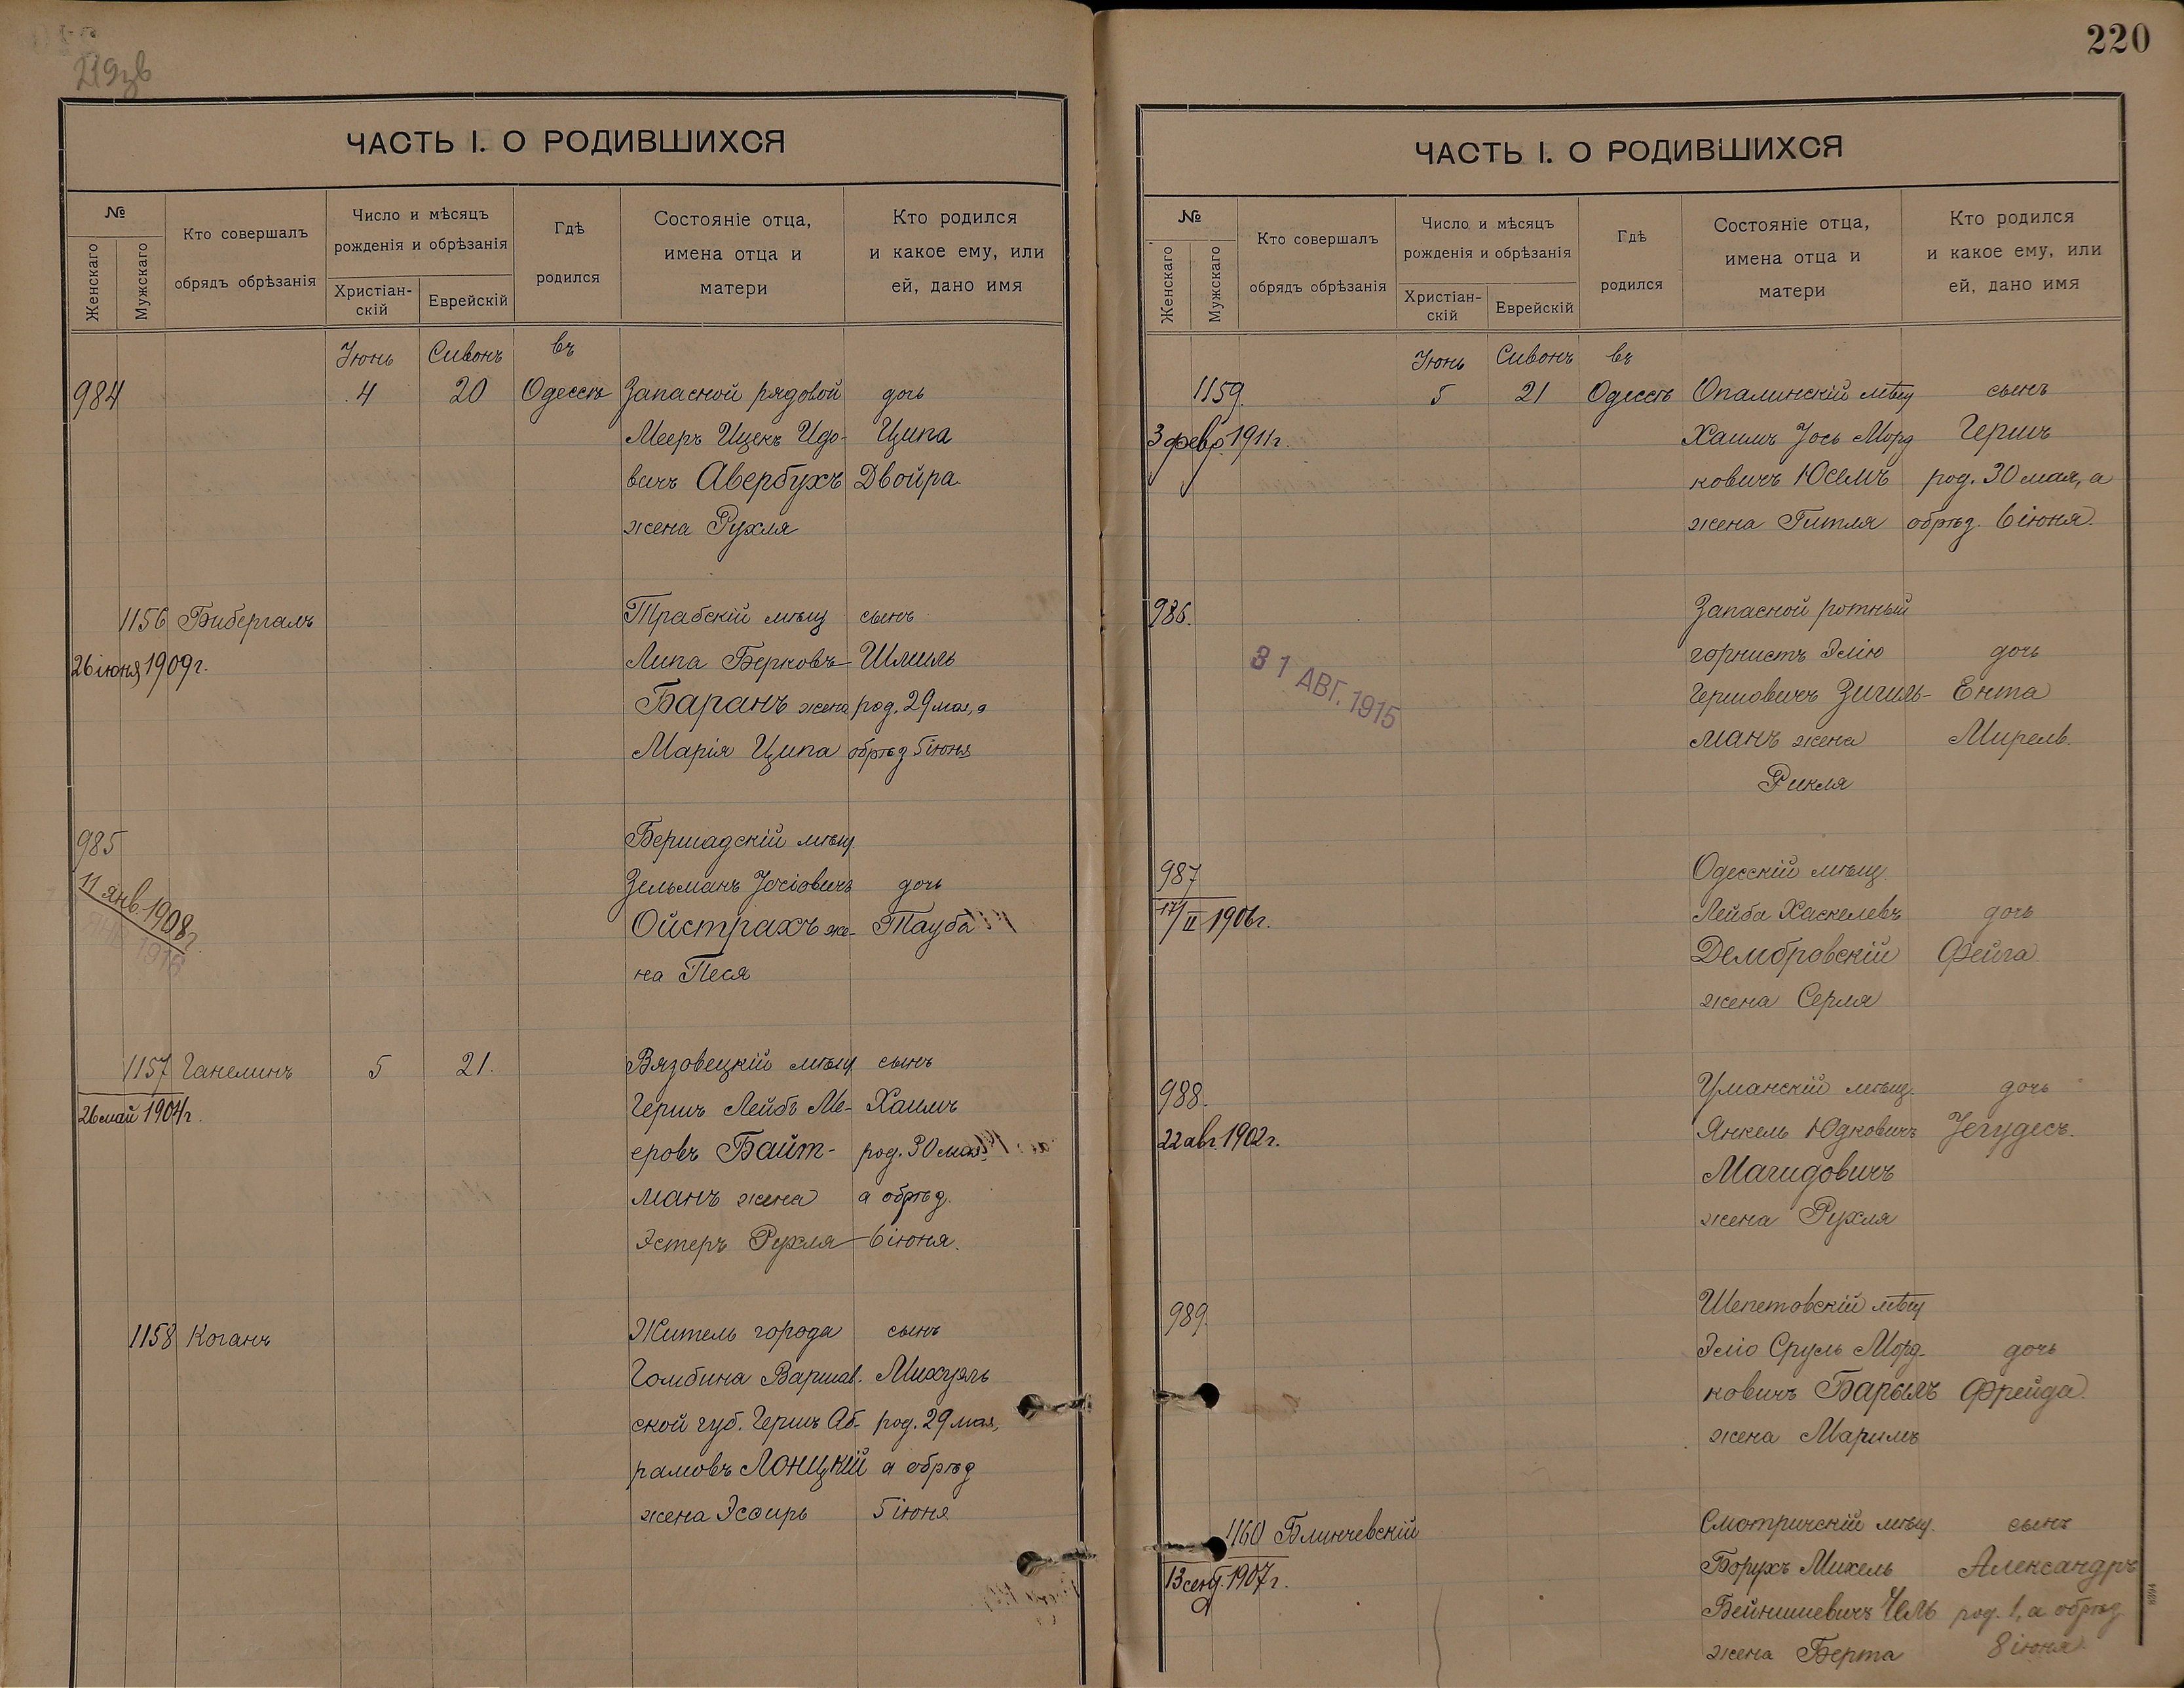 219зв
ЧАСТЬ I. О РОДИВШИХСЯ
№
Женскаго
Мужскаго
Кто совершалъ
обрядъ обрѣзанія
Число и мѣсяцъ
рожденія и обрѣзанія
Христіан-
скій
Еврейскій
Гдѣ
родился
Состояніе отца,
имена отца и
матери
Кто родился
и какое ему, или
ей, дано имя
Іюнь Сивонъ въ
984 4 20 Одессѣ Запасной рядовой дочь
Мееръ Ицекъ Идо- Ципа
вичъ Авербухъ Двойра
жена Рухля
1156 Бибергалъ Трабскій мѣщ сынъ
26 іюня 1909 г. Липа Берковъ Шмиль
Баранъ жена род. 29 мая, а
Марія Ципа обрѣз 5 іюня
985 Бершадскій мѣщ.
11 янв. 1908 г. Зельманъ Іосіовичъ дочь
Ойстрахъ же- Тауба
на Песя
1157 Ганелинъ 5 21. Вязовецкій мѣщ сынъ
26 май 1904 г. Гершъ Лейбъ Ме- Хаимъ
еровъ Байт- род. 30 мая
манъ жена а обрѣз.
Эстеръ Рухля 6 іюня.
1158 Коганъ Житель города сынъ
Гомбина Варшав. Михуэль
ской губ. Гершъ Аб- род. 29 мая,
рамовъ Лонцкій а обрѣз
жена Эсфирь 5 іюня
220
ЧАСТЬ I. О РОДИВШИХСЯ
№
Женскаго
Мужскаго
Кто совершалъ
обрядъ обрѣзанія
Число и мѣсяцъ
рожденія и обрѣзанія
Христіан-
скій
Еврейскій
Гдѣ
родился
Состояніе отца,
имена отца и
матери
Кто родился
и какое ему, или
ей, дано имя
Іюнь Сивонъ въ
1159. 5 21 Одессѣ Опалинскій мѣщ сынъ
3 февр. 1911 г. Хаимъ Іось Морд Гершъ
ковичъ Юсемъ род. 30 мая, а
жена Гитля обрѣз. 6 іюня.
986. Запасной ротный
31 АВГ. 1915 горнистъ Эліо дочь
Гершовичъ Зигиль- Ента
манъ жена Мирель.
Рикля
987 Одесскій мѣщ.
17/II 1906 г. Лейба Хаскелевъ дочь
Демобровскій Фейга
жена Серля
988. Уманскій мѣщ. дочь
22 авг. 1902 г. Янкель Юдковичъ Іегудесъ.
Магидовичъ
жена Рухля
989. Шепетовскій мѣщ
Эліо Сруль Морд- дочь
ковичъ Барылъ Фрейда.
жена Маримъ
1160 Блинчевскій Смотричскій мѣщ. сынъ
13 сент. 1907 г. Борухъ Михель Александръ
Бейнишевичъ род. 1, а обрѣз
жена Берта 8 іюня